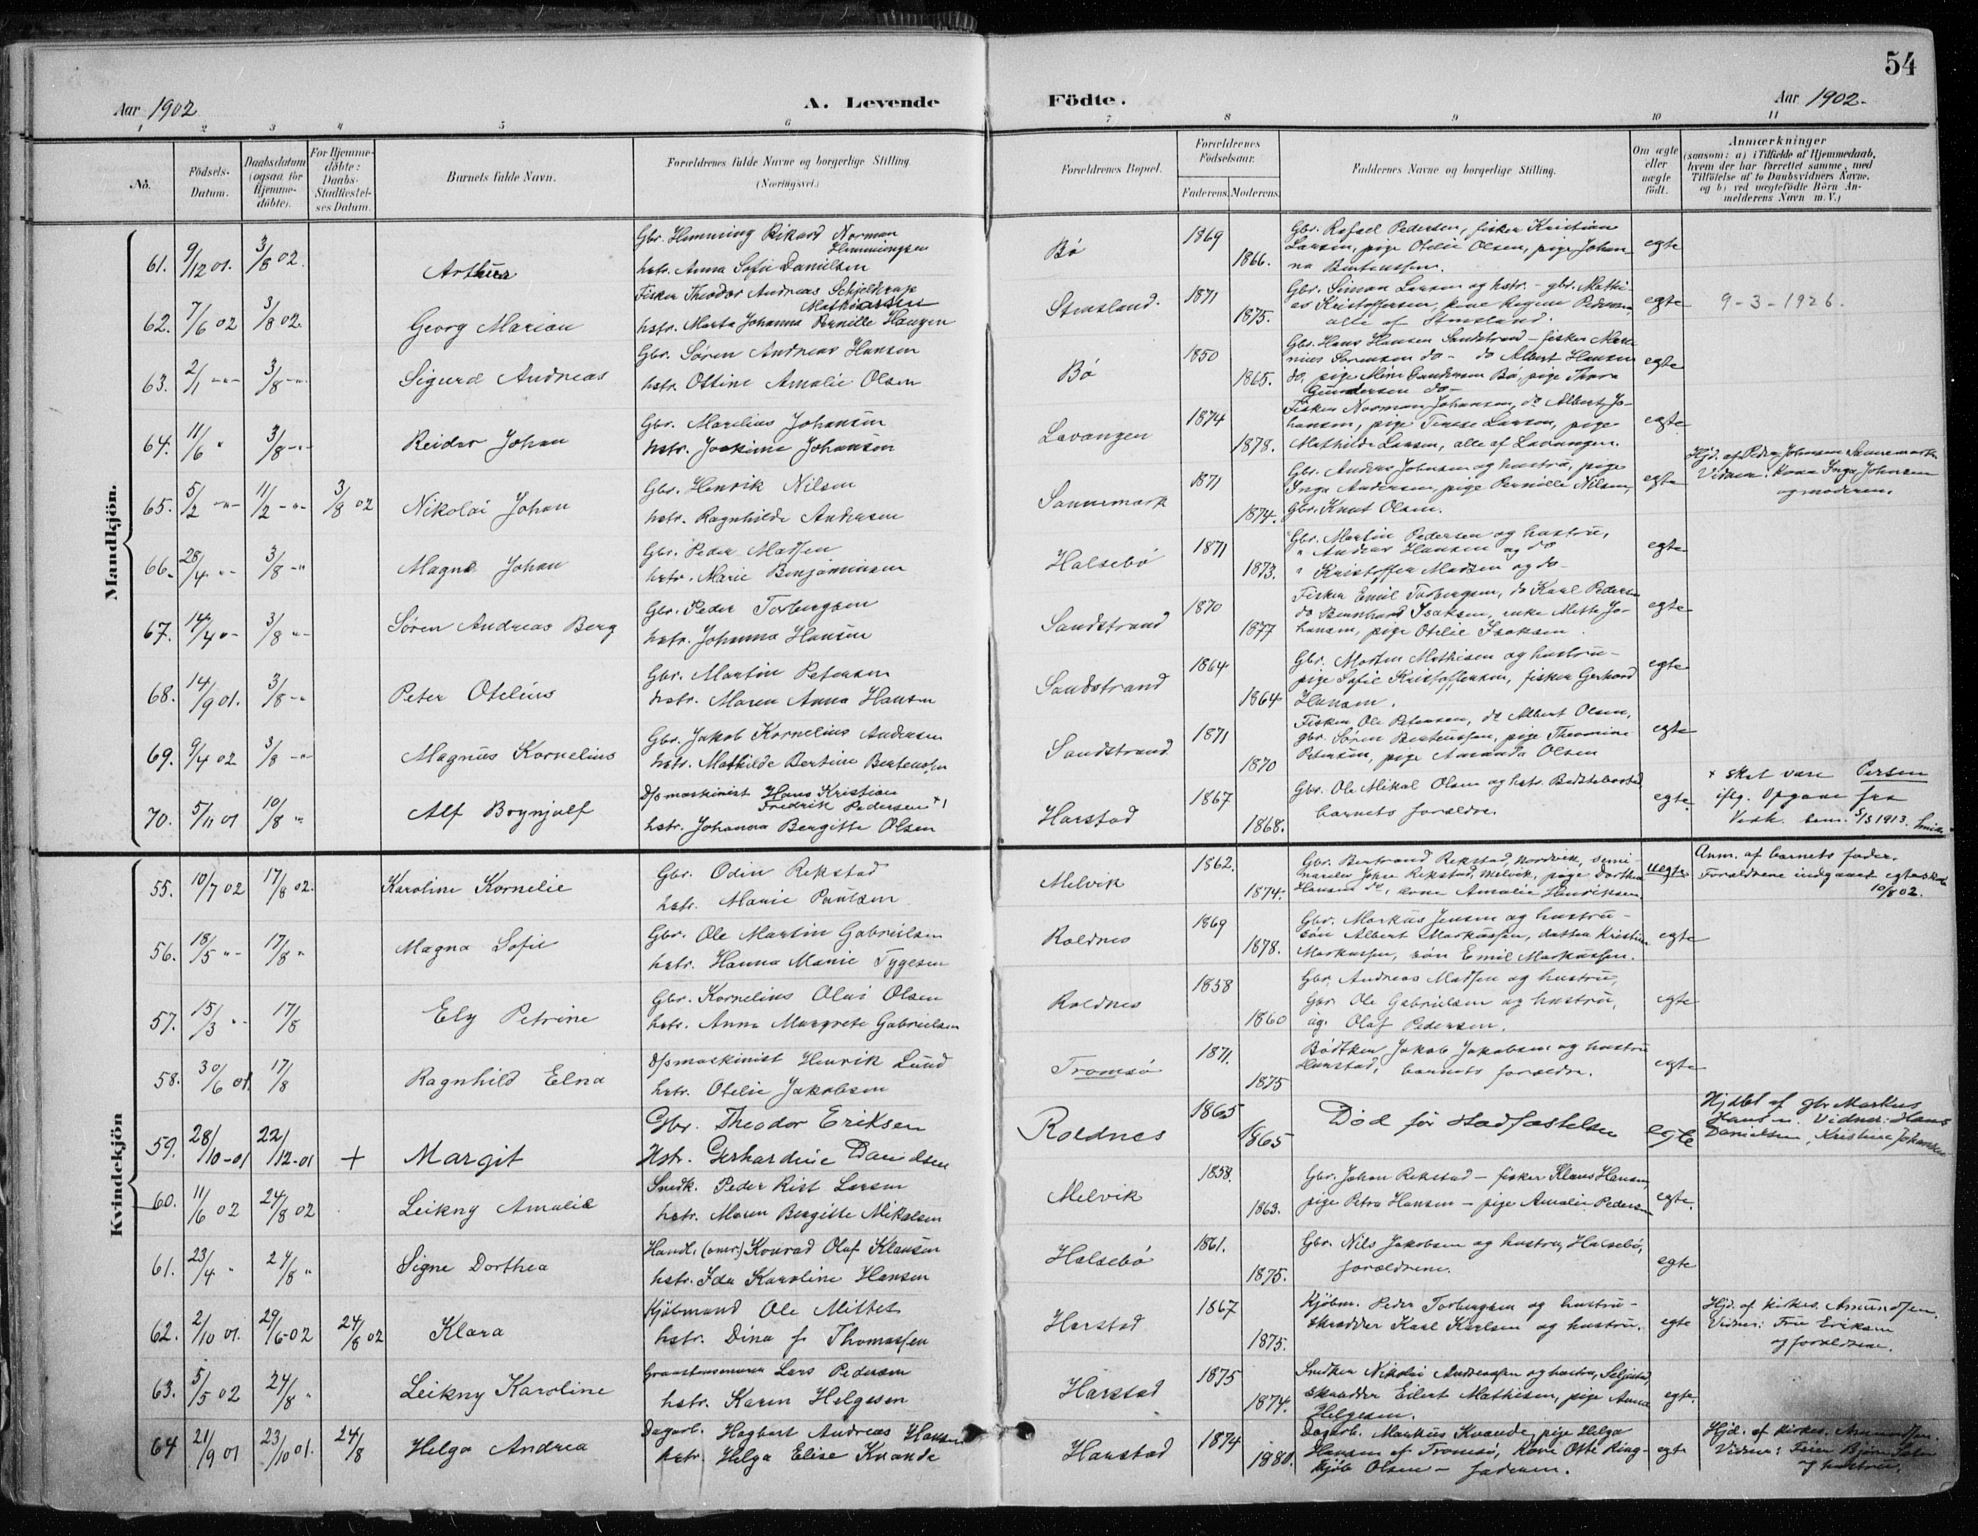 54
Aar 1902 A. Levende Födte. Aar 1902.
1 2 3 4 5 6 7 8 9 10 11
No.
Födsels-Datum.
Daabsdatum (ogsaa for Hjemmedöbte).
For Hjemmedöbte: Daabs-Stadfæstelses Datum.
Barnets fulde Navn.
Forældrenes fulde Navne og borgerlige Stilling. (Næringsvei.)
Forældrenes Bopæl.
Forældrenes Födselsaar. Faderens. Moderens.
Faddernes Navne og borgerlige Stilling.
Om ægte eller uægte födt.
Anmærkninger (saasom: a) i Tilfælde af Hjemmedaab, hvem der har forrettet samme, med Tilföielse af to Daabsvidners Navne, og b) ved uægtefödte Börn Anmelderens Navn m. V.)
Mandkjön.
61. 9/12 01. 3/8 02. Arthur
Gbr. Hemming Rikard Norman Hemmingsen
hstr. Anna Sofie Danielsen
Bö 1869 1866.
Gbr. Rafael Pedersen, fisker Kristian
Larsen, pige Otelie Olsen, pige Johan-
na Berteussen.
egte
62. 7/6 02 3/8 02. Georg Marian
Fisker Theodor Andreas Schjeldrup Mathiassen
hstr. Marta Johanna Pernille Haugen
1871 1875.
Gbr. Simon Larsen og hstr. - gbr. Mathi-
as Kristoffersen, pige Regine Pedersen
egte 9-3-1926.
63. 2/1 -"- 3/8 -"- Sigurd Andreas
Gbr. Søren Andreas Hansen
hstr. Ottine Amalie Olsen
Bø 1850 1865.
Gbr. Hans Hansen Sandstrand - fisker
Sørensen do - do Albert Hansen
Gundersen do -
egte
64. 11/6 " 3/8 -"- Reidar Johan
Gbr. Marelius Johansen
hstr. Joakime Johansen
Lavangen 1874 1878.
Fisker Norman Johansen, do Albert Jo-
hansen, pige Larsen, pige
Mathilde Larsen, alle af Lavangen.
egte
65. 5/2 -"- 11/2 -"- 3/8 02 Nikolai Johan
Gbr. Henrik Nilsen
hstr. Ragnhilde Andersen
Sannemark 1871 1874.
Gbr. Anders Johnsen og hustru, pige
Inga Andersen, pige Pernille Nilsen,
Gbr. Knut Olsen.
egte
Hjd. af Peder Johnsen Sannemark
Vidner: Kona Inga Johnsen
og moderen.
66. 28/4 -"- 3/8 -"- Magna Johan
Gbr. Peder Madsen
hstr. Marie Benjaminsen
Halsebö 1871 1873.
Gbr. Martin Pedersen og hustru,
" Andreas Hansen og do
" Kristoffer Madsen og do -
egte
67. 14/4 "- 3/8 "- Søren Andreas Berg
Gbr. Peder Torbergsen
hstr. Johanna Hansen
Sandstrand 1870 1877
Fisker Emil Torbergsen, do Karl Pedersen
do Bernhard Isaksen, enke Mette Jo-
hansen, pige Otelie Isaksen.
egte
68. 14/9 01. 3/8 -"- Peter Otelius
Gbr. Martin Petersen
hstr. Maren Anna Hansen
Sandstrand 1864 1864
Gbr. Morten Mathisen og hustru -
pige Sofie Kristoffersen, fisker Gerhard
Hansen.
egte
69. 9/4 02 3/8 -"- Magnus Kornelius
Gbr. Jakob Kornelius Andersen
hstr. Mathilde Bertine Berteussen
Sandstrand 1871 1870
Fisker Ole Petersen, do Albert Olsen,
gbr. Søren Berteussen, pige Thomine
Petersen, pige Amanda Olsen
egte
70. 5/11 01 10/8 " Alf Brynjulf
D/smaskinist Hans Kristian Fredrik Pedersen +)
hstr. Johanna Bergitte Olsen
Harstad 1867 1868.
Gbr. Ole Mikal Olsen og hstr.
barnets forældre.
egte.
+ skal være Persen
iflg. Opgave fra
1913.
Kvindekjön
55. 10/7 02 17/8 02. Karoline Kornelie
Gbr. Odin Rekstad
hstr. Marie Paulsen
Melvik 1862. 1874.
Gbr. Bertrand Rekstad, Nordvik, semi-
narelev John Rekstad, Melvik, pige Dorthea
Hansen do, kone Amalie Henriksen
uegte
Anm. af barnets fader.
Forældrene indgaaet egteskab
10/8 02.
56. 18/5 "- 17/8 " Magna Sofie
Gbr. Ole Martin Gabrielsen
hstr. Hanna Marie Tygesen
Roldnes 1869 1878.
Gbr. Markus Jensen og hustru -
søn Albert Markussen, datter Kristine
Markussen, søn Emil Markussen.
egte
57. 15/3 "- 17/8 Ely Petrine
Gbr. Kornelius Olai Olsen
hstr. Anna Margrete Gabrielsen
Roldnes 1858 1860
Gbr. Andreas Madsen og hustru,
Gbr. Ole Gabrielsen og hustru,
ug. Olaf Pedersen.
egte
58. 30/6 01 17/8 Ragnhild Elna
D/smaskinist Henrik Lund
hstr. Otelie Jakobsen
Tromsø 1871. 1875
Bødtker Jakob Jakobsen og hustru
Harstad, barnets forældre.
egte
59. 28/10-01 22/12-01 + Margit
Gbr. Theodor Eriksen
Hstr. Gerhardine Danielsen
Roldnes 1865 1865
Død før stadfæstelsen
egte
Hjdbt af gbr Markus
Hansen. Vidner: Hans
Danielsen, Kristine Johansen
60. 11/6 02 24/8 02 Leikny Amalie
Snedk. Peder Rist Larsen
hstr. Maren Bergitte Mikalsen
Melvik 1858. 1863.
Gbr. Johan Rekstad - fisker Klaus Hansen,
pige Petra Hansen - pige Amalie Pedersen
egte.
61. 23/4 " 24/8 " Signe Dorthea
Handl. (omr.) Konrad Olaf Klausen
hstr. Ida Karoline Hansen
Halsebö 1861. 1875.
Gbr. Nils Jakobsen og hustru, Halsebö,
forældrene.
egte
62. 2/10 01. 29/6-02 24/8 02 Klara
Kjøbmand Ole Mittet
hstr. Dina f. Thomassen
Harstad 1867 1875.
Kjøbm. Peder Torbergsen og hustru -
skrædder Karl Karlsen og hustru.
egte
Hjd. af kirkes. Amundsen.
Vidner: Fru Eriksen
og forældrene.
63. 5/5 02 24/8 " Leikny Karoline
Lars Pedersen
hstr. Karen Helgesen
Harstad 1875 1874.
Snedker Nikolai Andreassen og hustru, Seljestad
skrædder Eilert Mathisen, pige Anna
Helgesen.
egte
64 21/9 01 23/10 01. 24/8 Helga Andrea
Dagarb. Hagbert Andreas Hansen
hstr. Helga Elise Kvande
Harstad 1874 1880.
Dagarb. Markus Kvande, pige Helga
Hansen af Tromsø, kone Otte Ring-
kjøb Olsen - faderen.
egte
Hjd. af kirkes. Amundsen.
Vidner:
og hustru.